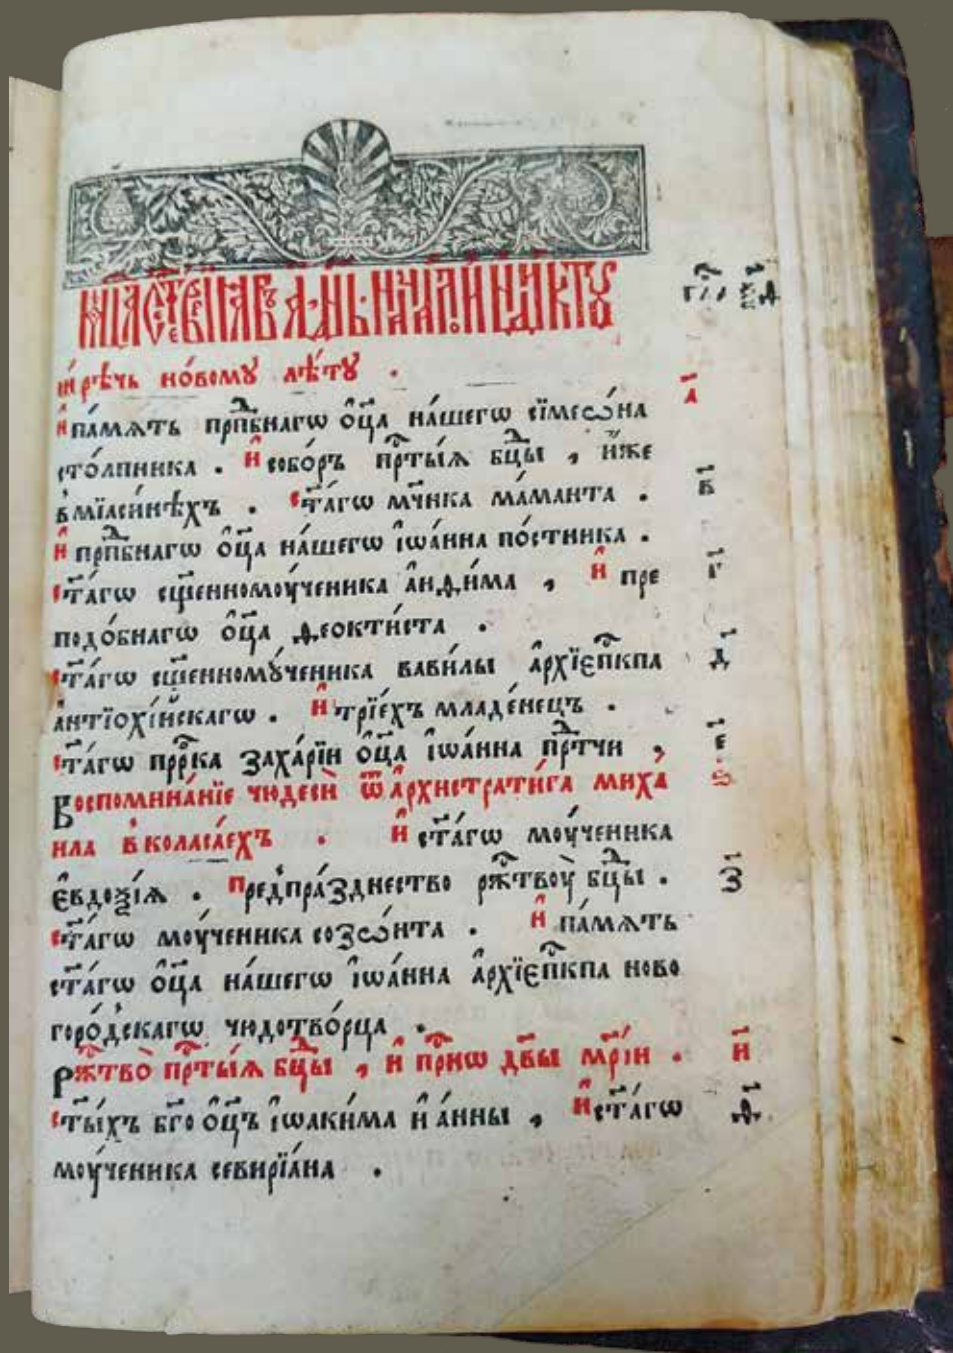 мц҃а септеврїа въ а҃ дн҃ь. начало индиктꙋ
сирѣчь но́вомꙋ лѣ́тꙋ .
и҆ па́мѧть прпⷣбнагѡ ѻ҆ц҃а на́шегѡ сїмеѡ́на а҃
сто́лпника . и҆ собо́ръ прⷭ҇ты́ѧ бцⷣы , и҆́же
в мїаси́нѣхъ . ст҃а́гѡ мч҃нка ма́манта . в҃
и҆ прпⷣбнагѡ ѻ҆ц҃а на́шегѡ і҆ѡа́нна по́стника .
ст҃а́гѡ сщ҃енномоу́ченика а҆нѳи́ма , и҆ пре г҃
подо́бнагѡ ѻ҆ц҃а ѳеокти́ста .
ст҃а́гѡ сщ҃енномꙋ́ченика вави́лы а҆рхїепⷭ҇кпа д҃
а҆нтїохі́йскагѡ . и҆ трїе́хъ младе́нецъ .
ст҃а́гѡ прⷪ҇рка заха́рїи ѻ҆ц҃а і҆ѡа́нна прⷣтчи , є҃
Воспомина́нїе чюдесѝ ѿ а҆рхистрати́га миха ѕ҃
ила в коласа́ехъ . и҆ ст҃а́гѡ моу́ченика
є҆вдоѯі́ѧ . Предпра́зднество ржⷭ҇твоу̀ бцⷣы . з҃
ст҃а́гѡ моу́ченика созѡ́нта . и҆ па́мѧть
ст҃а́гѡ ѻ҆ц҃а на́шегѡ і҆ѡа́нна а҆рхїепⷭ҇кпа ново
горо́дскагѡ чюдотво́рца .
Ржⷭ҇тво̀ прⷭ҇ты́ѧ бцⷣы , и҆ прⷭ҇ниѡ дв҃ы мр҃і́и . и҃
ст҃ы́хъ бг҃оѻ҆ц҃ъ і҆ѡаки́ма и҆ а҆́нны , и҆ ст҃а́гѡ ѳ҃
моу́ченика севирїа́на .